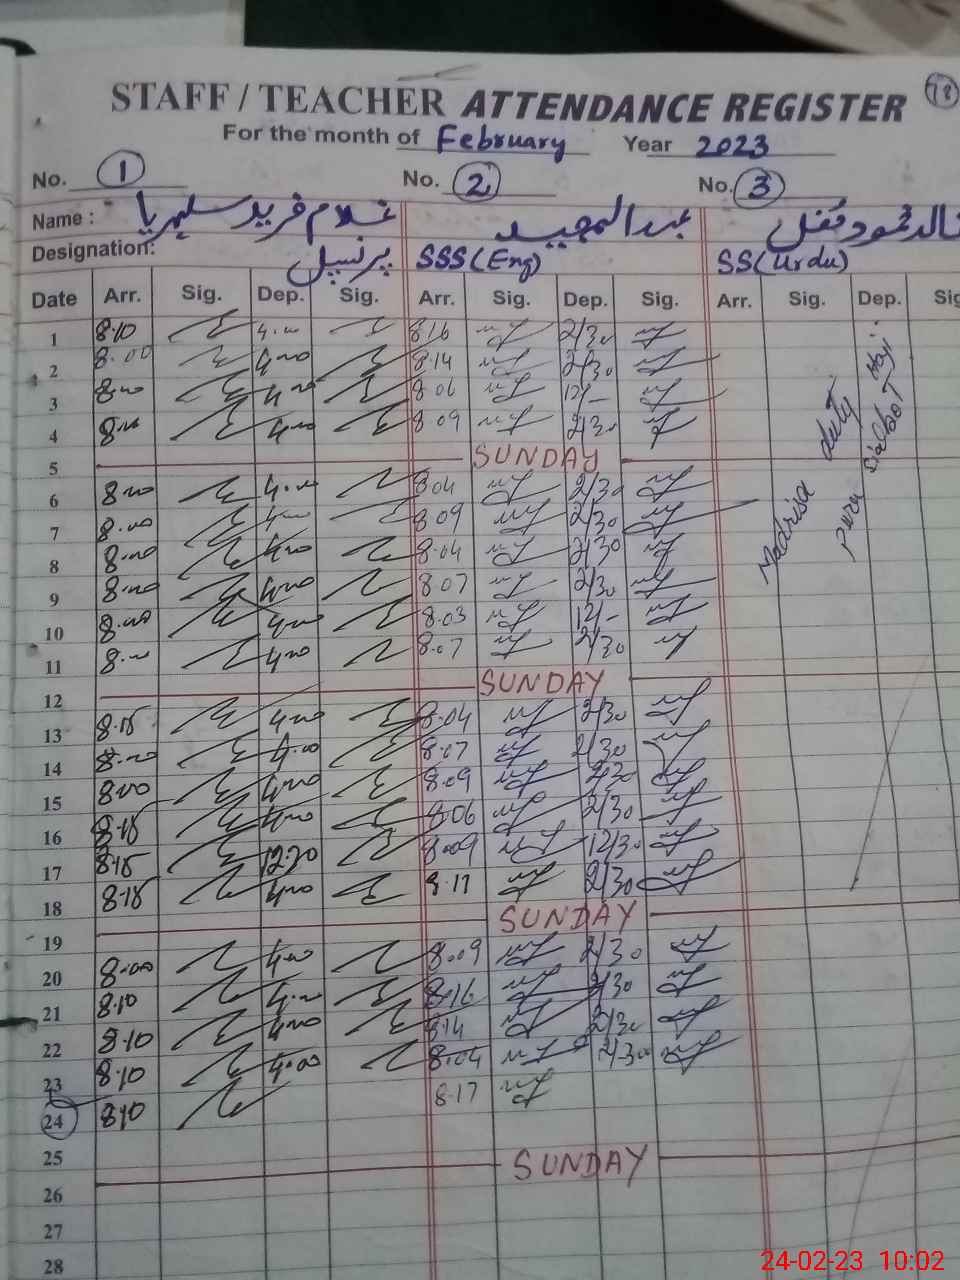 78
STAFF / TEACHER ATTENDANCE REGISTER
For the month of February Year 2023
No. 1 No. 2 No. 3
Name : غلام فرید سلہریا عبدالمجید خالد محمود مغل
Designation: پرنسپل SSS(Eng) SS(Urdu)
Date Arr. Sig. Dep. Sig. Arr. Sig. Dep. Sig. Arr. Sig. Dep. Sig
1 8.10 4.00 8.16 2/30
2 8.00 4.00 8.14 2/30
3 8.00 4.00 8.06 12/-
4 8.00 4.00 8.09 2/30
5 SUNDAY
6 8.00 4.00 8.04 2/30
7 8.00 4.00 8.09 2/30
8 8.00 4.00 8.04 2/30
9 8.00 4.00 8.07 2/30
10 8.00 4.00 8.03 12/-
11 8.00 4.00 8.07 2/30
12 SUNDAY
13 8.15 4.00 8.04 2/30
14 8.00 4.00 8.07 2/30
15 8.00 4.00 8.09 2/30
16 8.15 4.00 8.06 2/30
17 8.15 12.30 8.09 12/30
18 8.15 4.00 8.17 2/30
19 SUNDAY
20 8.00 4.00 8.09 2/30
21 8.10 4.00 8.16 2/30
22 8.10 4.00 8.14 2/30
23 8.10 4.00 8.04 2/30
24 8.10 8.17
25
26 SUNDAY
27
28
Madrisa duty Haji
pura Sialkot
24-02-23 10:02